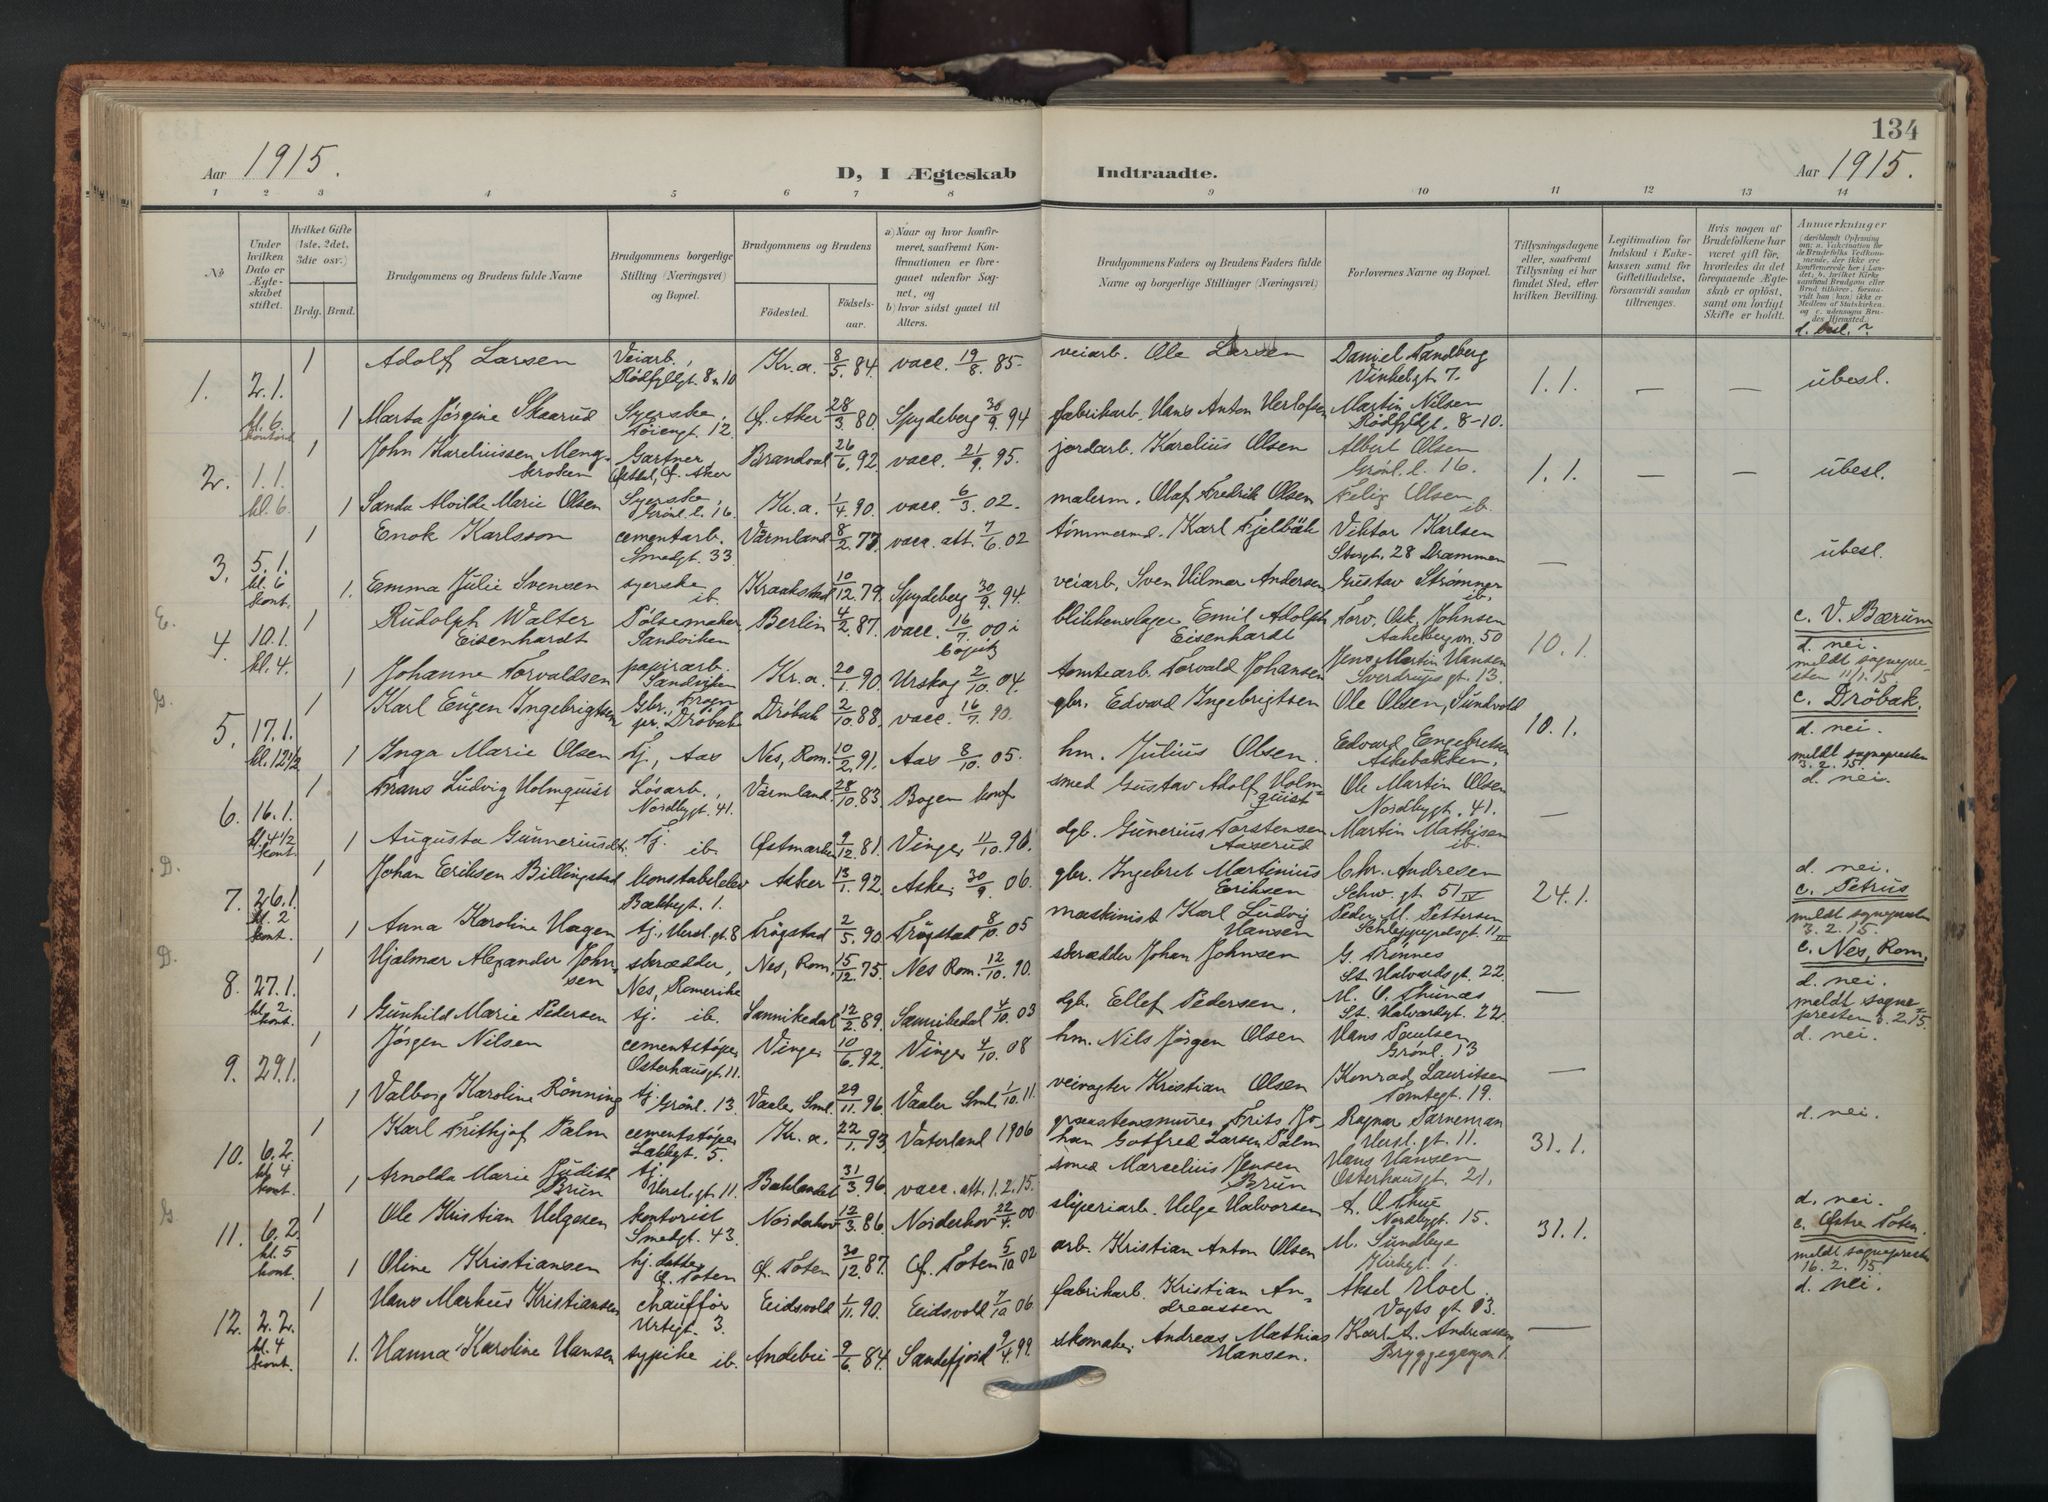 134
Aar 1915.
D, I Ægteskab Indtraadte.
Aar 1915.
1 2 3 4 5 6 7 8 9 10 11 12 13 14
No
Under hvilken Dato er Ægteskabet stiftet.
Hvilket Gifte (1ste, 2det, 3die osv.)
Brdg. Brud.
Brudgommens og Brudens fulde Navne
Brudgommens borgerlige Stilling (Næringsvei) og Bopæl.
Brudgommens og Brudens
Födested. Födselsaar.
a) Naar og hvor konfirmeret, saafremt Konfirmationen er foregaaet udenfor Sognet, og
b) hvor sidst gaaet til Alters.
Brudgommens Faders og Brudens Faders fulde Navne og borgerlige Stillinger (Næringsvei)
Forlovernes Navne og Bopæl.
Tillysningsdagene eller, saafremt Tillysning ei har fundet Sted, efter hvilken Bevilling.
Legitimation for Indskud i Enkekassen samt for Giftetilladelse, forsaavidt saadan tiltrænges.
Hvis nogen af Brudefolkene har været gift før, hvorledes da det foregaaende Ægteskab er opløst, samt om lovligt Skifte er holdt.
Anmærkninger
d. besl. ?
1. 2.1. kl. 6. kontoret
1 Adolf Larsen Veiarb., Rödfyllgt. 8 & 10 Kr.a. 8/5 84. vacc. 19/8. 85. veiarb. Ole Larsen Daniel Sandberg Vinkelgt. 7. 1.1. – – ubesl.
1 Marta Jörgine Skaarud Syerske, Töiengt. 12. Ø. Aker 28/3 80 Spydeberg 30/9. 94 fabrikarb. Hans Anton Herlofsen Martin Nilsen Rödfyldgt. 8-10.
2. 1.1. kl. 6
1 John Kareliussen Mengkroken Gartner Østel, Ø. Aker Brandval 26/6. 92 vacc. 21/9. 95. jordarb. Karelius Olsen Albert Olsen Grönl. l. 16. 1.1. – – ubesl.
1 Sanda Alvilde Marie Olsen Syerske, Grönl. l. 16 Kr. a. 1/4. 90. vacc. 6/3. 02. malerm. Olaf Fredrik Olsen Felix Olsen ib.
3. 5.1. kl. 6 kont.
1 Enok Karlsson cementarb. Smedgt. 33 Värmland 8/2. 77 vacc. att. 7/6. 02 tömmermd. Karl Fjelbäk Viktor Karlsen Storgt. 28 Drammen – ubesl.
1. Emma Julie Svensen syerske ib. Kraakstad 10/12 79. Spydeberg 30/9. 94. veiarb. Sven Hilmar Andersen Gustav Strömner ib.
E.
4. 10.1. kl. 4.
1 Rudolph Walter Eisenhardt Pölsemaker Sandviken Berlin 4/2. 87. vacc. 16/7. 00 i blikkenslager Emil Adolph Eisenhardt Torv. Osk. Johnsen Aakebergvn. 50 10.1. c. V. Bærum d. nei.
1 Johanne Torvaldsen papirarb. Sandviken Kr. a. 20/1. 90. Urskog 2/10. 04. tomtearb. Torvald Johansen Jens Martin Hansen Sverdrups gt. 13. meldt sognepresten 11/1. 15.
G.
5. 17.1. kl. 12 1/2
1 Karl Eugen Ingebrigtsen Gbr., Frogn pr. Dröbak Dröbak 2/10. 88. vacc. 16/7. 90. gbr. Edvard Ingebrigtsen Ole Olsen, Sundvold 10.1. c. Dröbak. d. nei.
1 Inga Marie Olsen tj., Aas Nes, Rom. 10/2. 91. Aas 8/10. 05. hm. Julius Olsen. Edvard Engebretsen Askebakken. meldt sognepresten 3.2.15.
6. 16.1. kl. 4 1/2 kont.
1 Frans Ludvig Holmquist Lösarb., Nordbygt. 41. Värmland. 28/10. 83. Bogen konf smed Gustav Adolf Holmquist Ole Martin Olsen Nordbygt. 41. – d. nei.
1 Augusta Gunneriusdt. Tj. ib. Østmarken 9/12. 81. Vinger 11/10. 96. dgb. Gunerius Torstensen Aaserud Martin Mathisen ib.
D.
7. 26.1. kl. 2 kont.
1 Johan Eriksen Billingstad konstabelelev Bakkegt. 1. Asker 13/1. 92. Asker 30/9. 06. gbr. Ingebret Martinius Eriksen Chr. Andresen Schw. gt. 51 IV 24.1. d. nei. c. Petrus
1 Anna Karoline Hagen tj., Hersl. gt. 8 Trögstad 2/5. 90. Trögstad 8/10. 05 maskinist Karl Ludvig Hansen Peder M. Pettersen Schleppegrelsgt. 11 III meldt sognepresten 3.2.15.
D.
8. 27.1. kl. 2. kont.
1 Hjalmar Alexander Johnsen skrædder, Nes, Romerike Nes, Rom. 15/12. 75. Nes Rom. 12/10. 90. skrædder Johan Johnsen G. Trönnes St. Halvardsgt. 22. – c. Nes, Rom. d. nei.
1 Gunhild Marie Pedersen tj. ib. Sannikedal 12/2. 89. Sannikedal 4/10. 03 dgb. Ellef Pedersen. M. C. Thunæs St. Halvardsgt. 22. meldt sognepresten 3.2.15.
9. 29.1.
1 Jörgen Nilsen cementstöper Osterhausgt. 11. Vinger 10/6. 92. Vinger 4/10. 08 hm. Nils Jörgen Olsen Hans Poulsen Grönl. 13 – d. nei.
1 Valborg Karoline Rönning tj. Grönl. 13. Vaaler Sml. 29/11. 96. Vaaler Sml. 1/10. 11. veivogter Kristian Olsen Konrad Lauritsen Tomtegt. 19.
10. 6.2. kl. 4 kont.
1 Karl Frithjof Palm cementstöper Lakkegt. 5. Kr. a. 22/1. 93. Vaterland 1906 graastensmurer Frits Johan Gotfred Larsen Palm Ragnar Parneman Hersl. gt. 11. 31.1. d. nei.
1 Arnolda Marie Judith Brun tj. Hersl. gt. 11. Baklandet 31/3. 96. vacc. att. 1.2.15. smed Marcelius Jensen Brun Hans Hansen Osterhausgt. 21.
G
11. 6.2. kl. 5 kont.
1 Ole Kristian Helgesen kontorist Smedgt. 43. Norderhov 12/3. 86. Norderhov 22/4. 00 sliperiarb. Helge Halvorsen A. O. Thue Nordbygt. 15. 31.1. d. nei. c. Østre Toten.
1 Oline Kristiansen hj. datter Ø. Toten Ø. Toten 30/12. 87. Ø. Toten 5/10 02 arb. Kristian Anton Olsen M. Sundbye Kirkegt. 1. meldt sognepresten 16.2.15.
12. 2.2. kl. 4 kont.
1 Hans Markus Kristiansen chaufför Urtegt. 3. Eidsvold 1/11. 90. Eidsvold 7/10 06. fabrikarb. Kristian Andreassen Aksel Moel. Vogts gt. 13. – d. nei.
1. Hanna Karoline Hansen sypike ib. Andebu 9/6. 84. Sandefjord 9/4. 99. skomaker Andreas Mathias Hansen. Karl A. Andreassen Bryggegangen 1.